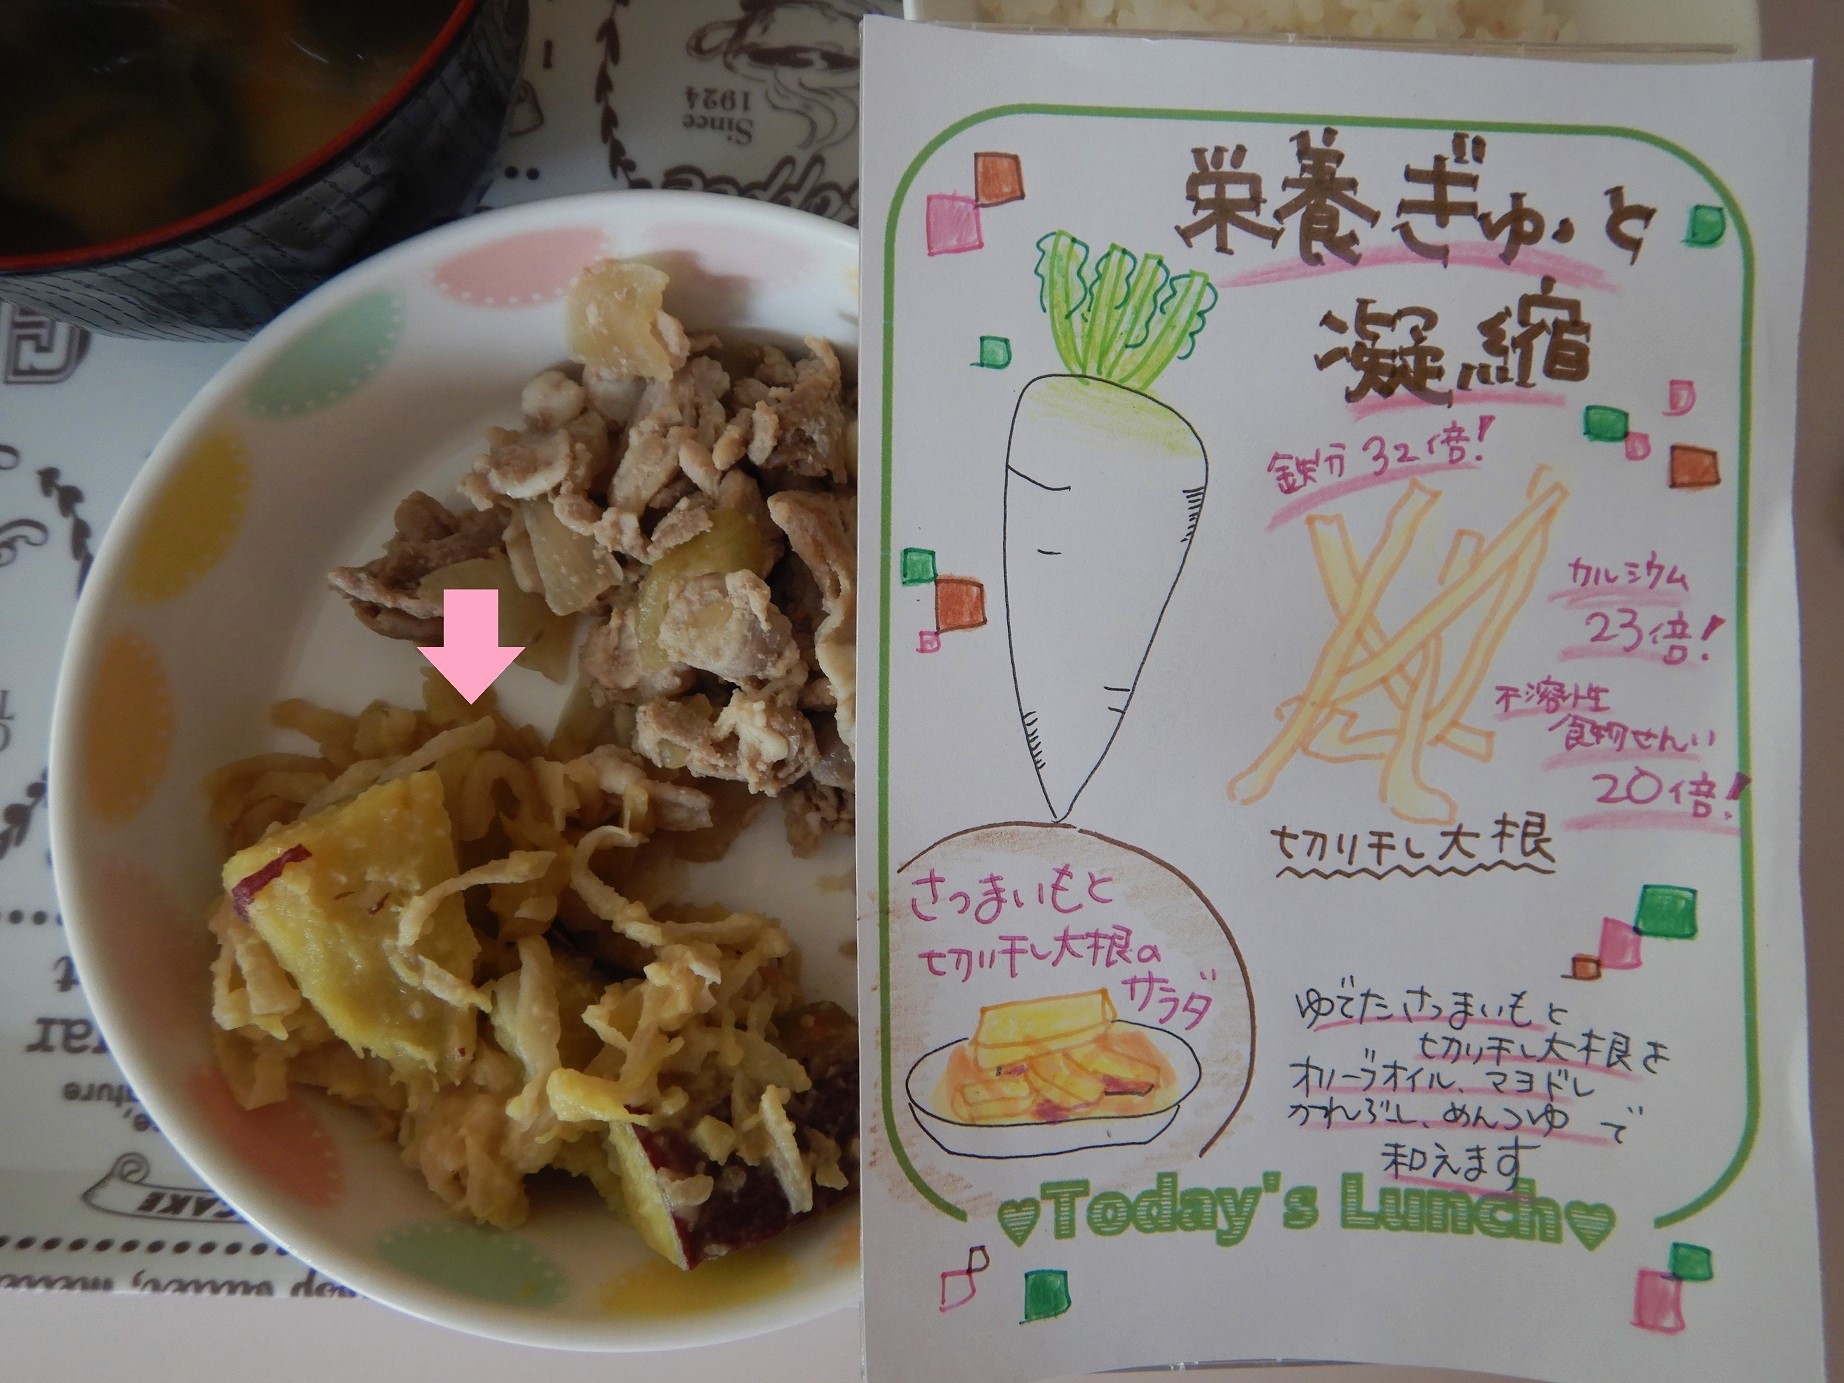 Since
1924
栄養ぎゅっと
凝縮
鉄分32倍!
カルシウム
23倍!
不溶性
食物せんい
20倍!
切り干し大根
さつまいもと
切り干し大根の
サラダ
ゆでたさつまいもと
切り干し大根を
オリーブオイル、マヨドレ
かれぶし、めんつゆで
和えます
♥Today's Lunch♥
CAKE